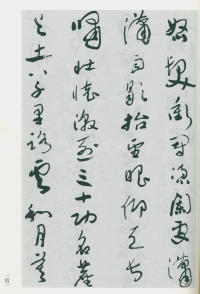 怒髮衝冠憑闌處瀟
瀟雨歇抬望眼仰天長
嘯壯懷激烈三十功名塵
與土八千里路雲和月莫